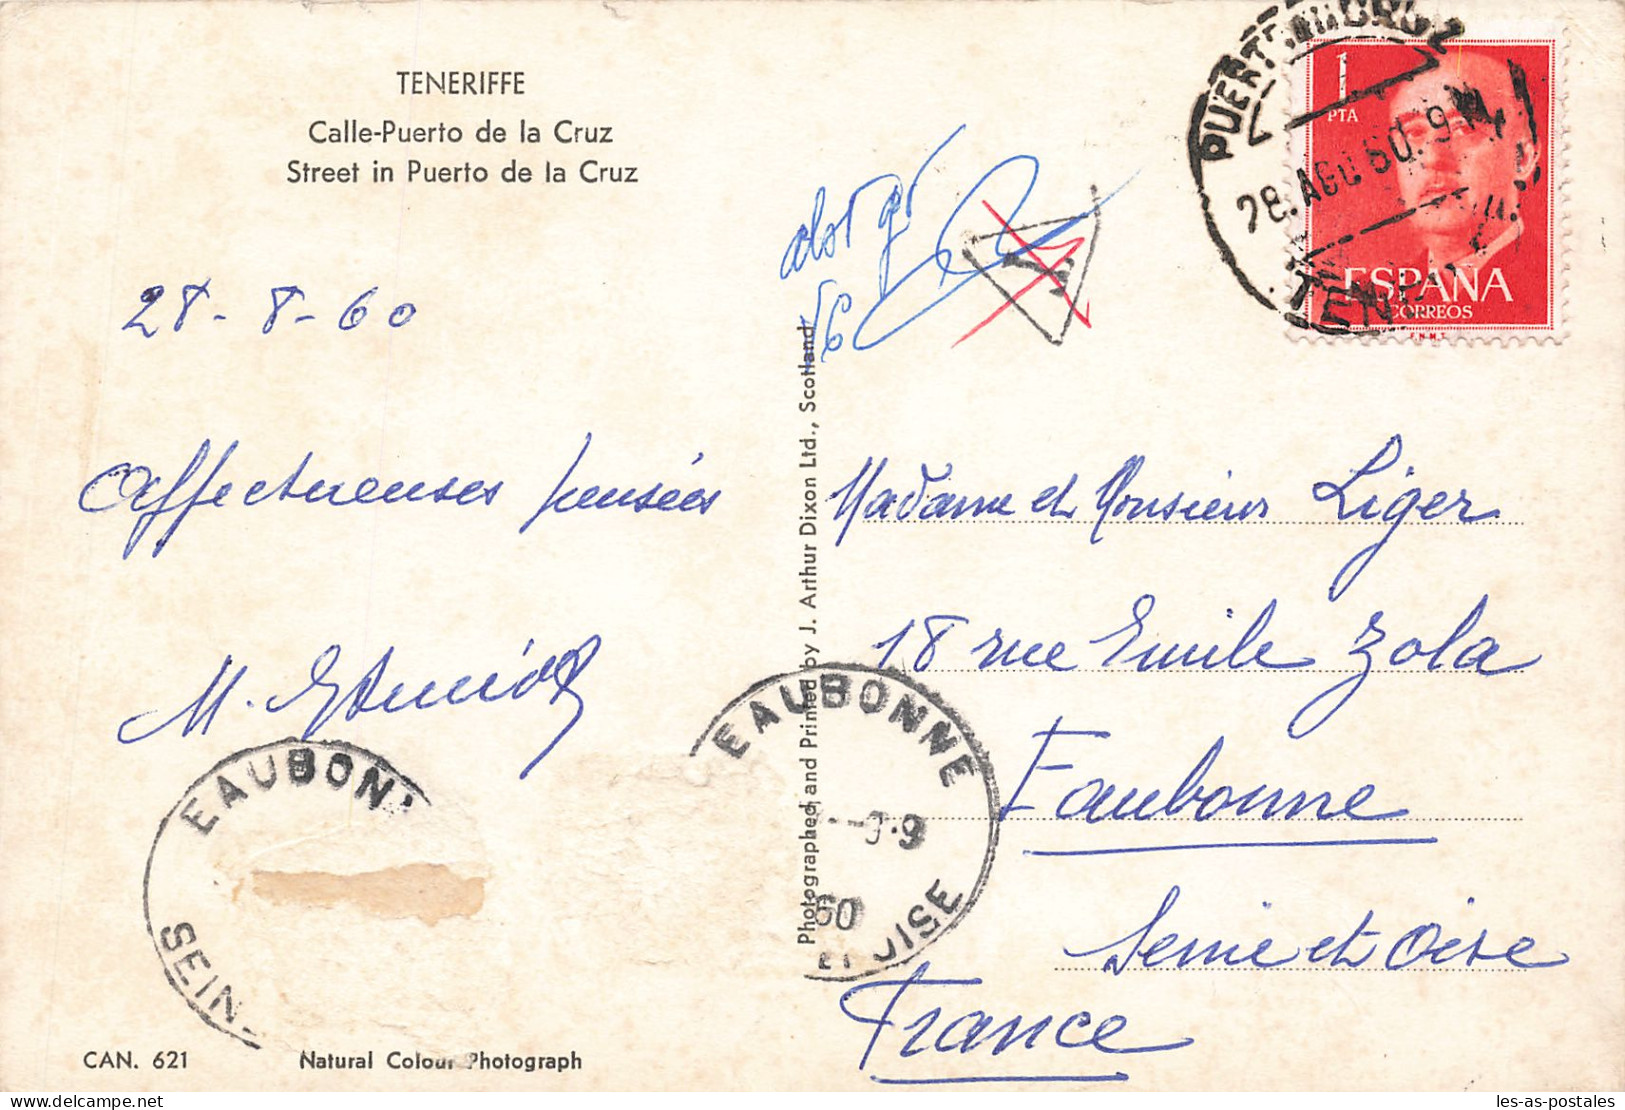 TENERIFFE
Calle-Puerto de la Cruz
Street in Puerto de la Cruz
28-8-60
Affectueuses pensées
M.
EAUBONN
SEIN
CAN. 621
Natural Colour Photograph
Photographed and Printed by J. Arthur Dixon Ltd., Scotland
EAUBONNE
-9
60
ET OISE
T
PUERTO DE LA CRUZ
28.AGO.60.9
TENERIFE
1
PTA
ESPAÑA
CORREOS
F.N.M.T.
Madame et Monsieur Liger
18 rue Emile Zola
Eaubonne
Seine et Oise
France
les-as-postales
delcampe.net